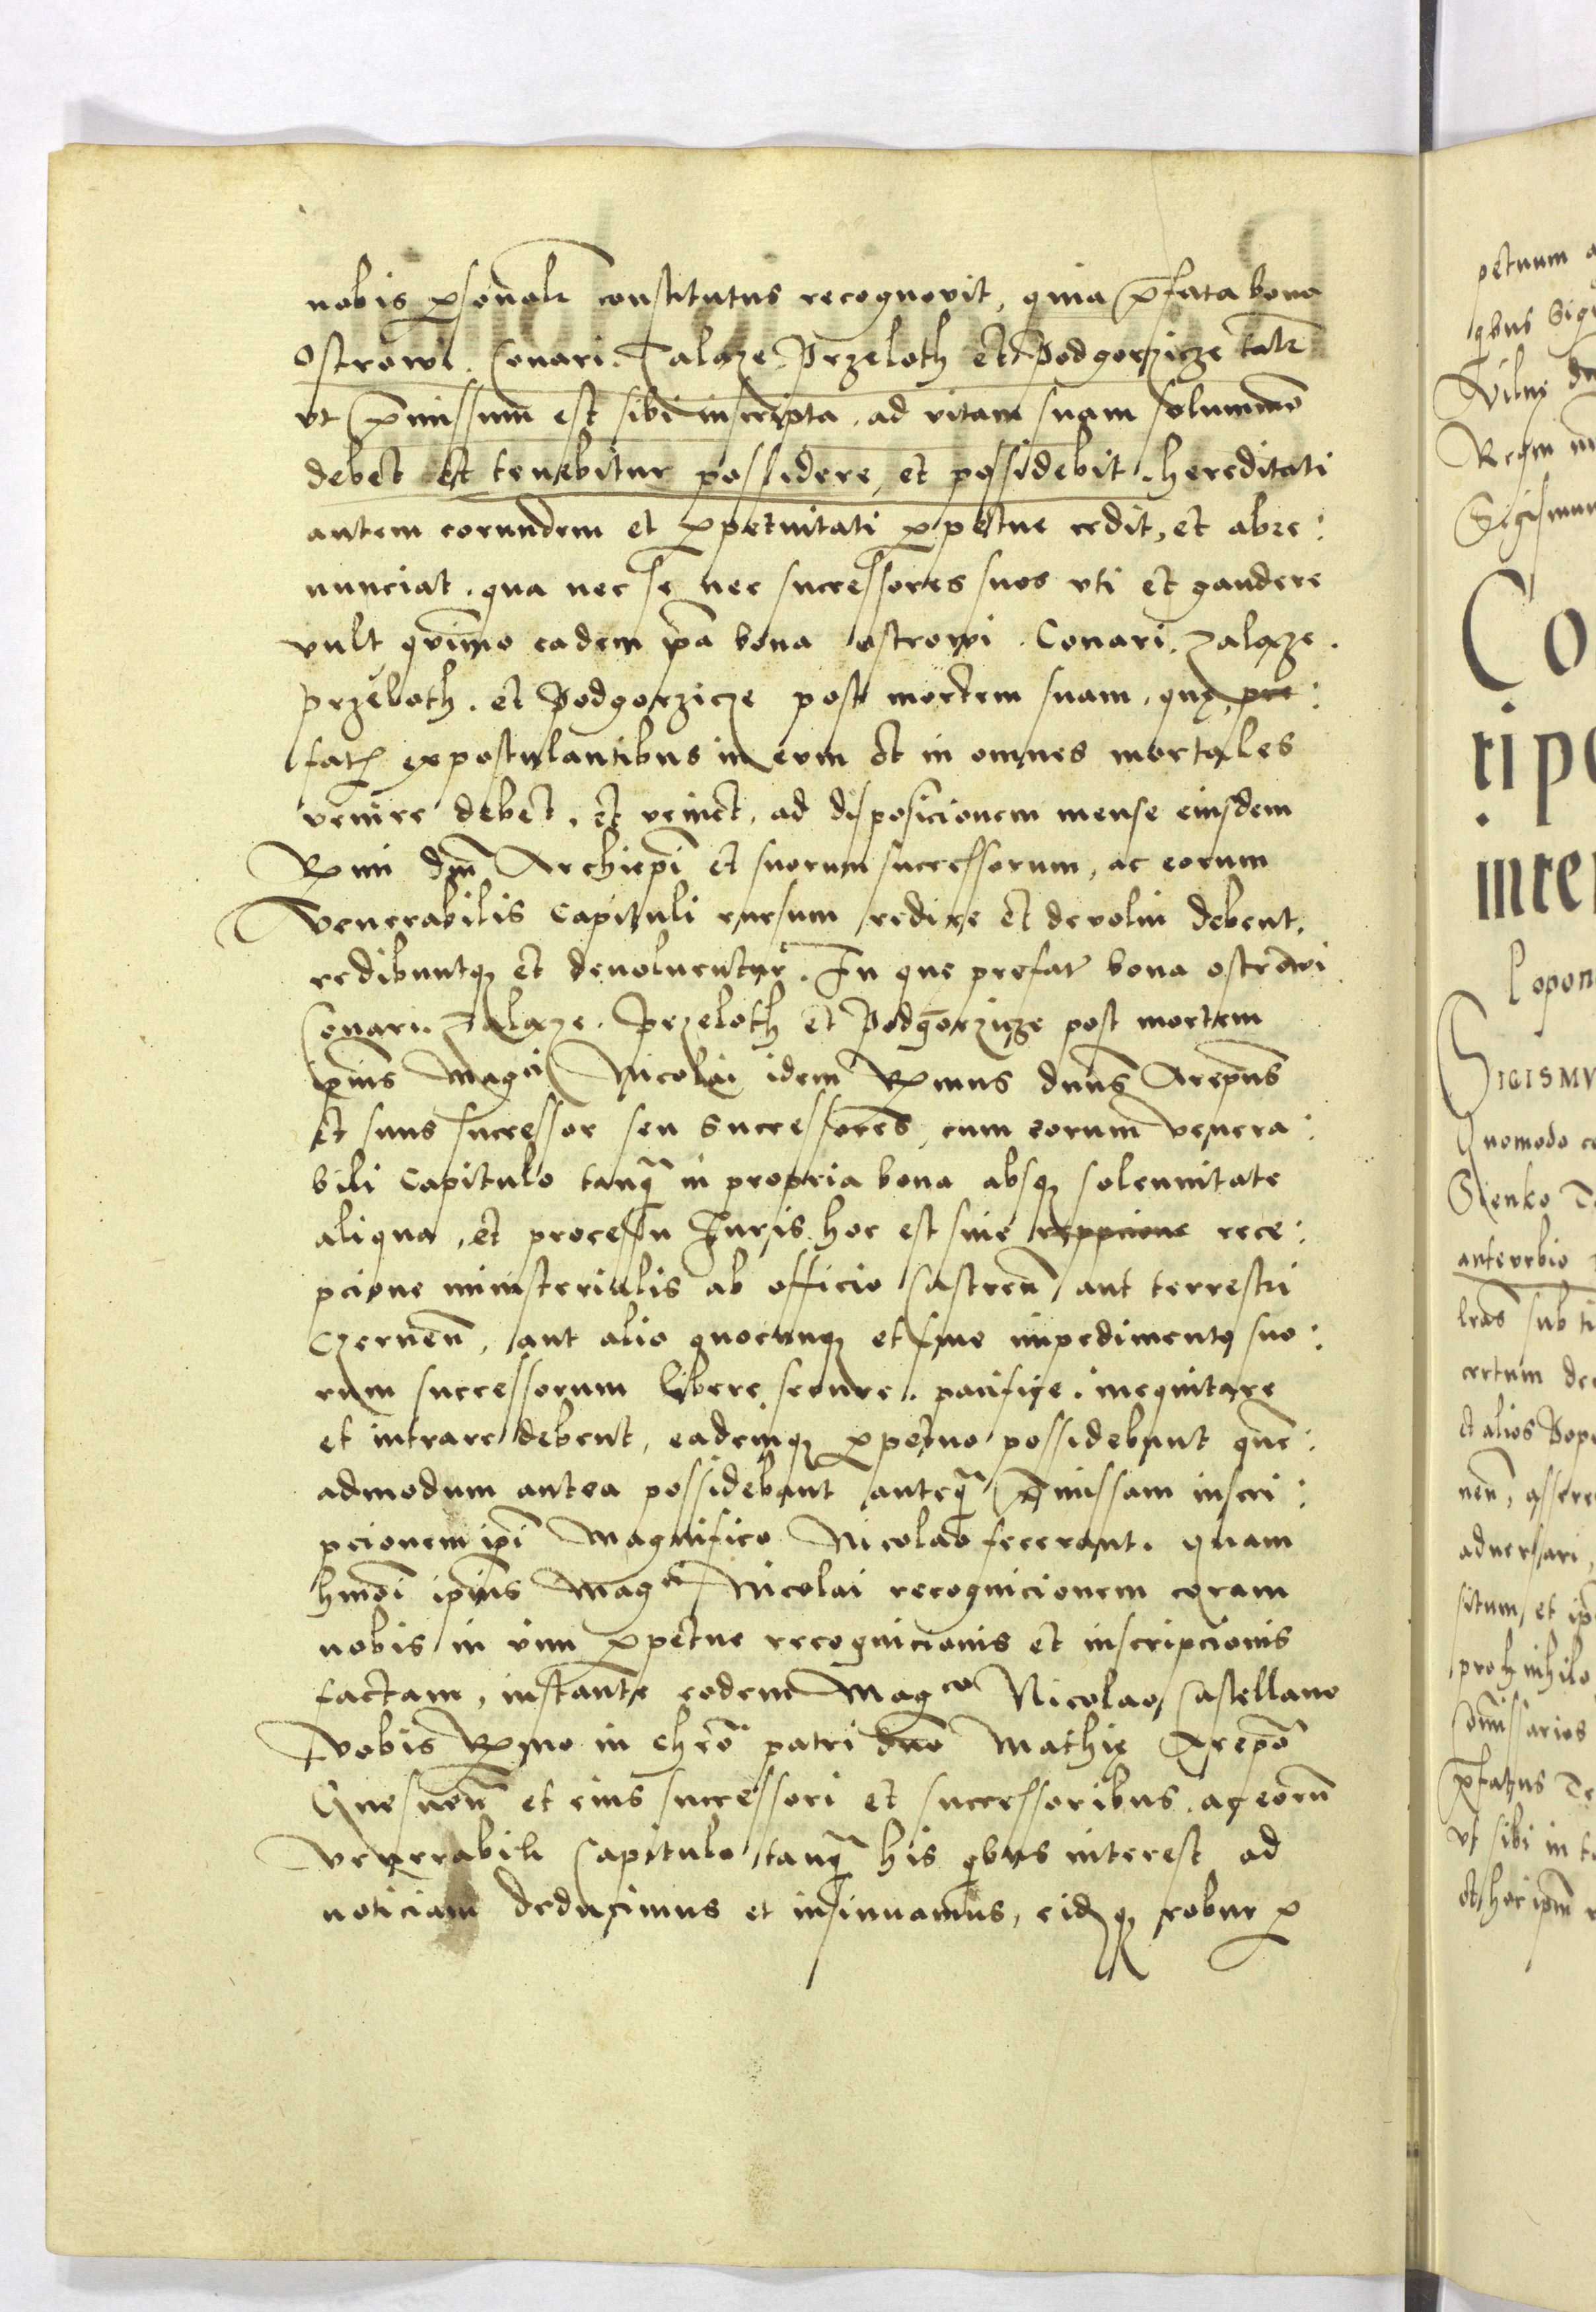 nobis p̱sonalr constitutus recognovit, quia p̄fata bona
Ostrowi. Conari. Zalaze. Przeloth et Podgorzicze talr
vt p̄missum est sibi inscripta, ad vitam suam solummō
debet et tenebitur possidere, et possidebit. hereditati
autem eorundem et p̱petuitati p̱petue cedit, et abre:
nunciat. qua nec se nec successores suos vti et gaudere
vult q̄nimmo eadem ip̄a bona ostrowi. Conari. Zalaze.
przeloth. et Podgorzicze post mortem suam, quę pre:
fatꝭ expostulantibus in eum et in omnes mortales
venire debet, et veniet, ad disposicionem mense eiusdem
Rmi dn̄i Archiep̄i et suorum successorum, ac eorum
Venerabilis Capituli rursum redire et devolui debent.
redibuntqꝫ et devoluentur. In que prefatꝭ bona ostrowi
Conari. Zalaze. Przeloth et Podgorzicze post mortem
ip̄ius Magci Nicolai idem Rmus dnn̄s Arep̄us
et suus successor seu Successores, cum eorum venera:
bili Capitulo tanq̄ in propria bona absqꝫ solennitate
aliqua, et processu Juris. hoc est sine reppcione rece:
pcione ministerialis ab officio Castren̄ aut terrestri
Czernen̄, aut alio quocunqꝫ et sine impedimento suo:
rum successorum libere, secure. pacifice. inequitare
et intrare debent, eademqꝫ p̱petuo possidebunt quē:
admodum antea possidebant anteq̄ p̄missam inscri:
pcionem ip̄i Magnifico Nicolao fecerant. quam
hmōi ip̄ius Magci Nicolai recognicionem coram
nobis in vim p̱petue recognicionis et inscripcionis
factam, instante eodem Magco Nicolao Castellano
Vobis Rmo in chrō patri dnō Mathię Arep̄o
Gnesnen̄ et eius successori et successoribus. ac eorū
venerabili Capitulo tanq̄ his qbus interest ad
noticiam deducimus et insinuamus, eidqꝫ robur p̱
petuum
qbus Sigi
Vilnę
Regni
Sigismun
Co
ripo
inter
Popon
SIGISMV
Quomodo
Sienko
anteurbio
lrās sub
certum
et alios
nen̄, assere
adversari,
situm, et ip̄
pro nihilo
Com̄issarios
p̄fatus
vt sibi in
et hoc ipm̄